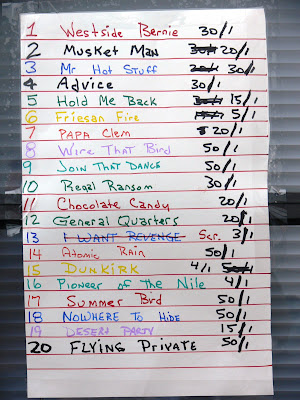 1 Westside Bernie 30/1
2 Musket Man 20/1
3 Mr Hot Stuff 20/1 30/1
4 Advice 30/1
5 Hold Me Back 15/1
6 Friesan Fire 5/1
7 PAPA Clem 20/1
8 Wire That Bird 50/1
9 JOIN THAT DANCE 50/1
10 Regal Ransom 30/1
11 Chocolate Candy 20/1
12 General Quarters 20/1
13 I WANT REVENGE Scr. 3/1
14 Atomic Rain 50/1
15 DUNKIRK 4/1
16 Pioneer of The Nile 4/1
17 Summer Bird 50/1
18 NOWHERE TO HIDE 50/1
19 DESERT PARTY 15/1
20 FLYING PRIVATE 50/1